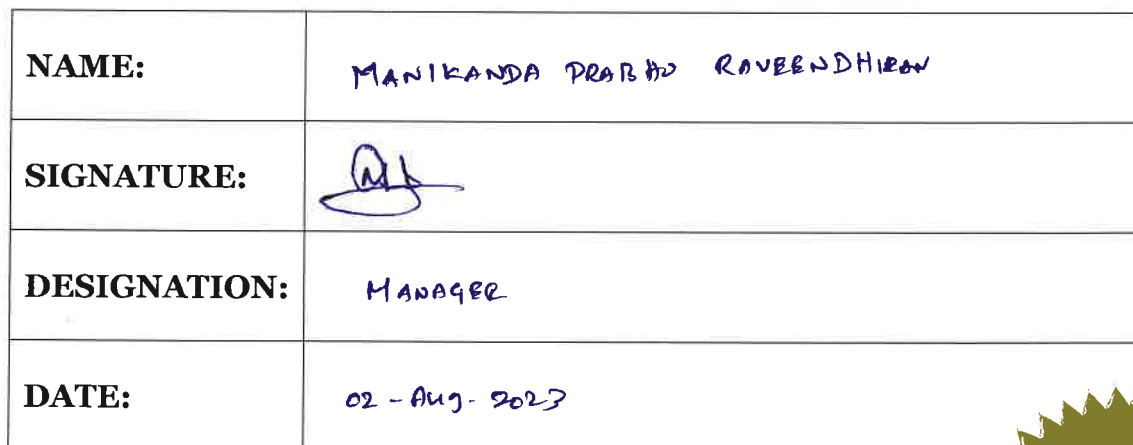 NAME: MANIKANDA PRABHU RAVEENDHIRAN
SIGNATURE:
DESIGNATION: MANAGER
DATE: 02-Aug-2023